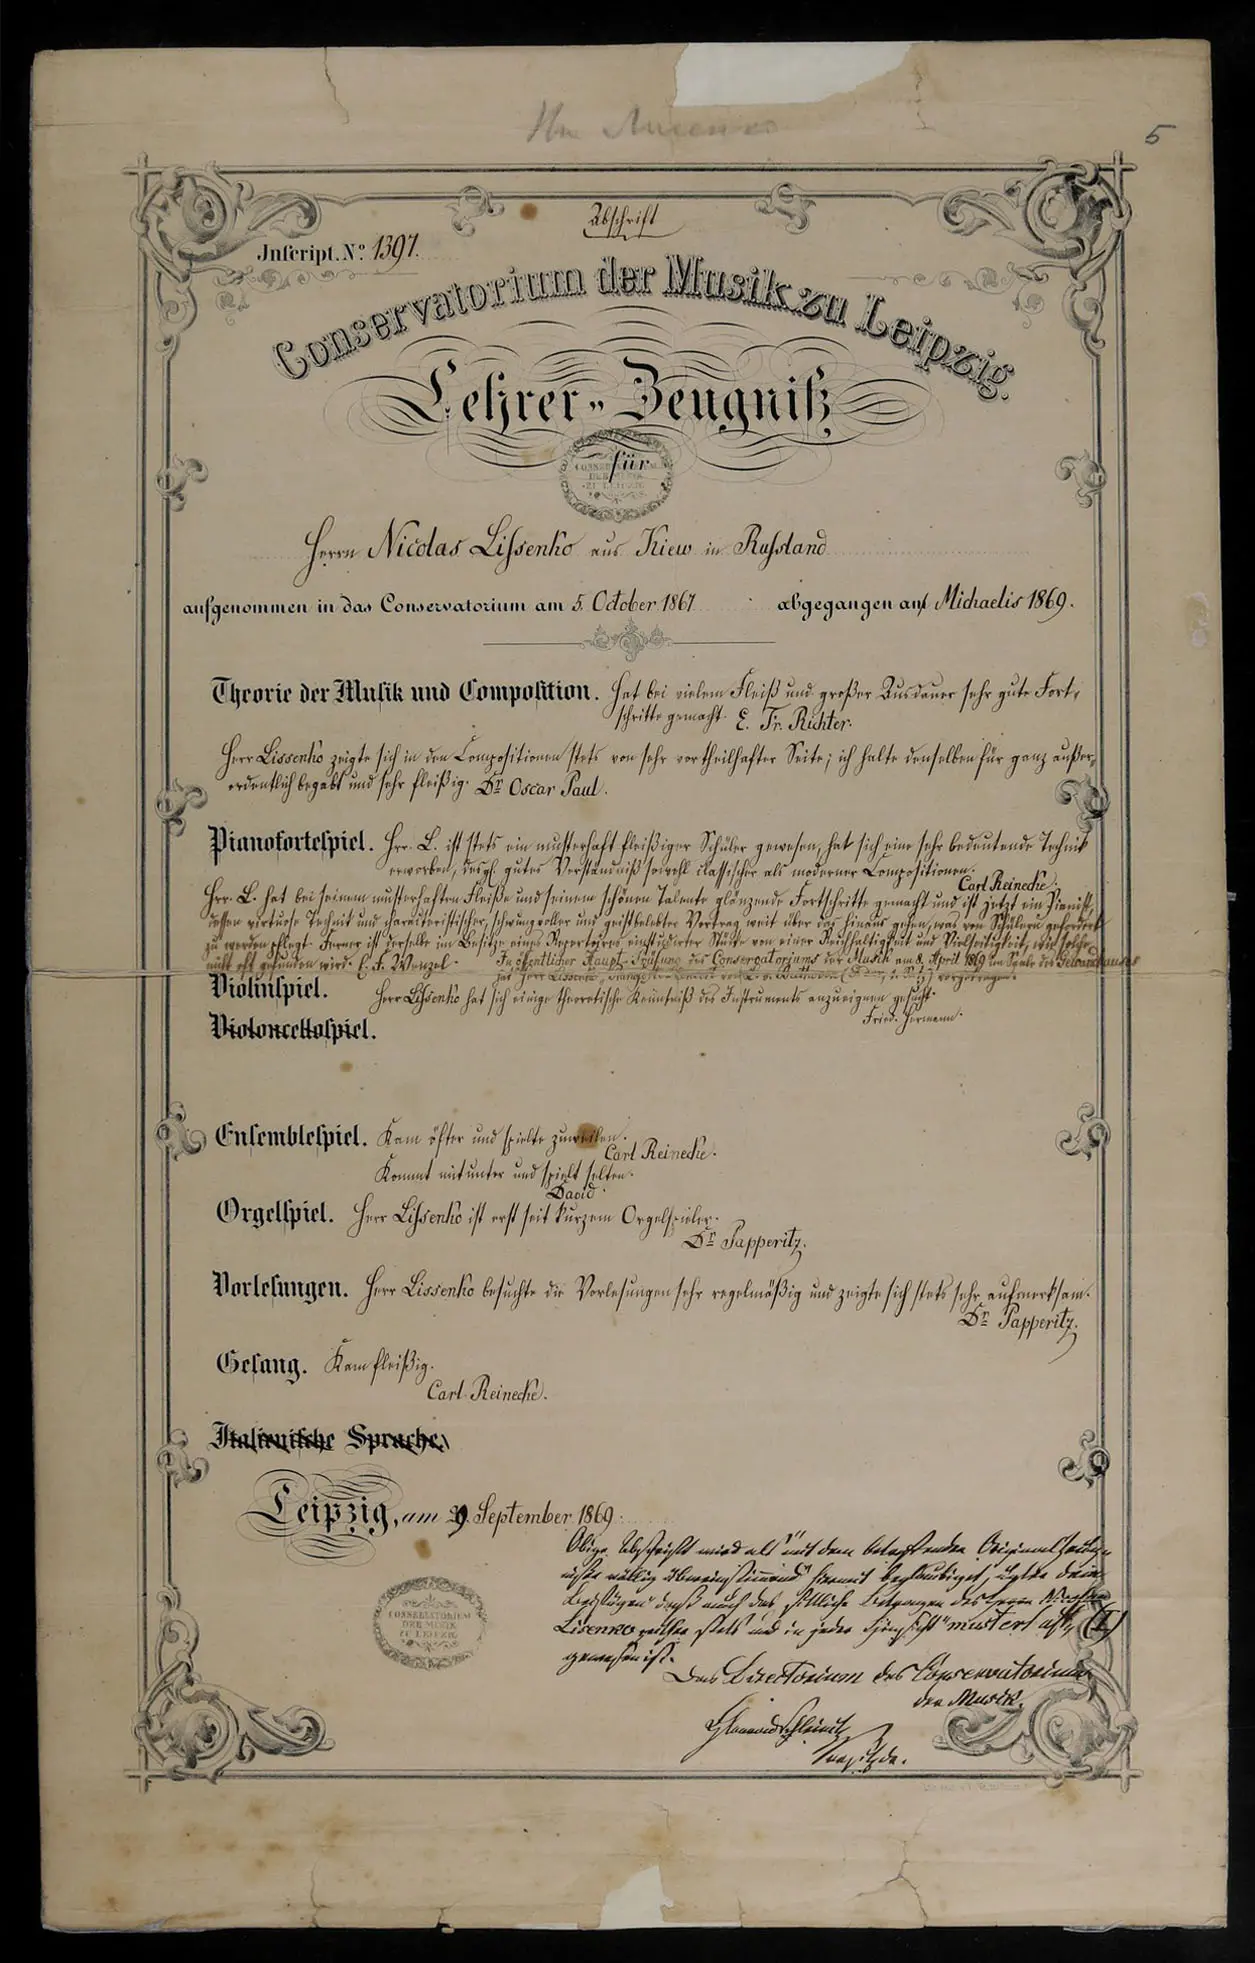 5
Abschrift
Inscript. No. 1397.
Conservatorium der Musik zu Leipzig.
Lehrer-Zeugniß
für
CONSERVATORIUM
DER MUSIK
ZU LEIPZIG
Herrn Nicolas Lissenko aus Kiew in Russland
aufgenommen in das Conservatorium am 5. October 1867 abgegangen auf Michaelis 1869.
Theorie der Musik und Composition. Hat bei vielem Fleiß und großer Ausdauer sehr gute Fort-
schritte gemacht. E. Fr. Richter.
Herr Lissenko zeigte sich in den Compositionen stets von sehr vortheilhafter Seite; ich halte denselben für ganz außer-
ordentlich begabt und sehr fleißig. Dr. Oscar Paul.
Pianofortespiel. Herr L. ist stets ein musterhaft fleißiger Schüler gewesen, hat sich eine sehr bedeutende Technik
erworben, desgl. gutes Verständniß sowohl classischer als moderner Compositionen.
Carl Reinecke.
Herr L. hat bei seinem musterhaften Fleiße und seinem schönen Talente glänzende Fortschritte gemacht und ist jetzt ein Pianist,
dessen virtuose Technik und charakteristischer, schwungvoller und geistbelebter Vortrag weit über das hinaus gehen, was von Schülern gefordert
zu werden pflegt. Ferner ist derselbe im Besitze eines Repertoires einstudirter Stücke von einer Reichhaltigkeit und Vielseitigkeit, wie solche
nicht oft gefunden wird. E. F. Wenzel. In öffentlicher Haupt-Prüfung des Conservatoriums der Musik am 8. April 1869 im Saale des Gewandhauses
hat Herr Lissenko vorgetragen.
Violinspiel. Herr Lissenko hat sich einige theoretische Kenntniß des Instruments anzueignen gesucht.
Fried. Hermann.
Violoncellospiel.
Ensemblespiel. Kam öfter und spielte zuweilen.
Carl Reinecke.
Kommt mitunter und spielt selten.
David.
Orgelspiel. Herr Lissenko ist erst seit kurzem Orgelspieler.
Dr. Papperitz.
Vorlesungen. Herr Lissenko besuchte die Vorlesungen sehr regelmäßig und zeigte sich stets sehr aufmerksam.
Dr. Papperitz.
Gesang. Kam fleißig.
Carl Reinecke.
Italienische Sprache.
Leipzig, am 29. September 1869.
Obige Abschrift wird als "mit dem betreffenden Originalzeug-
nisse völlig übereinstimmend" hiermit beglaubigt, unter dem
Beifügen daß auch das sittliche Betragen des Herrn Nicolas
Lisenko stets und in jeder Hinsicht "musterhaft" (I)
gewesen ist.
CONSERVATORIUM
DER MUSIK
ZU LEIPZIG
Das Directorium des Conservatoriums
der Musik.